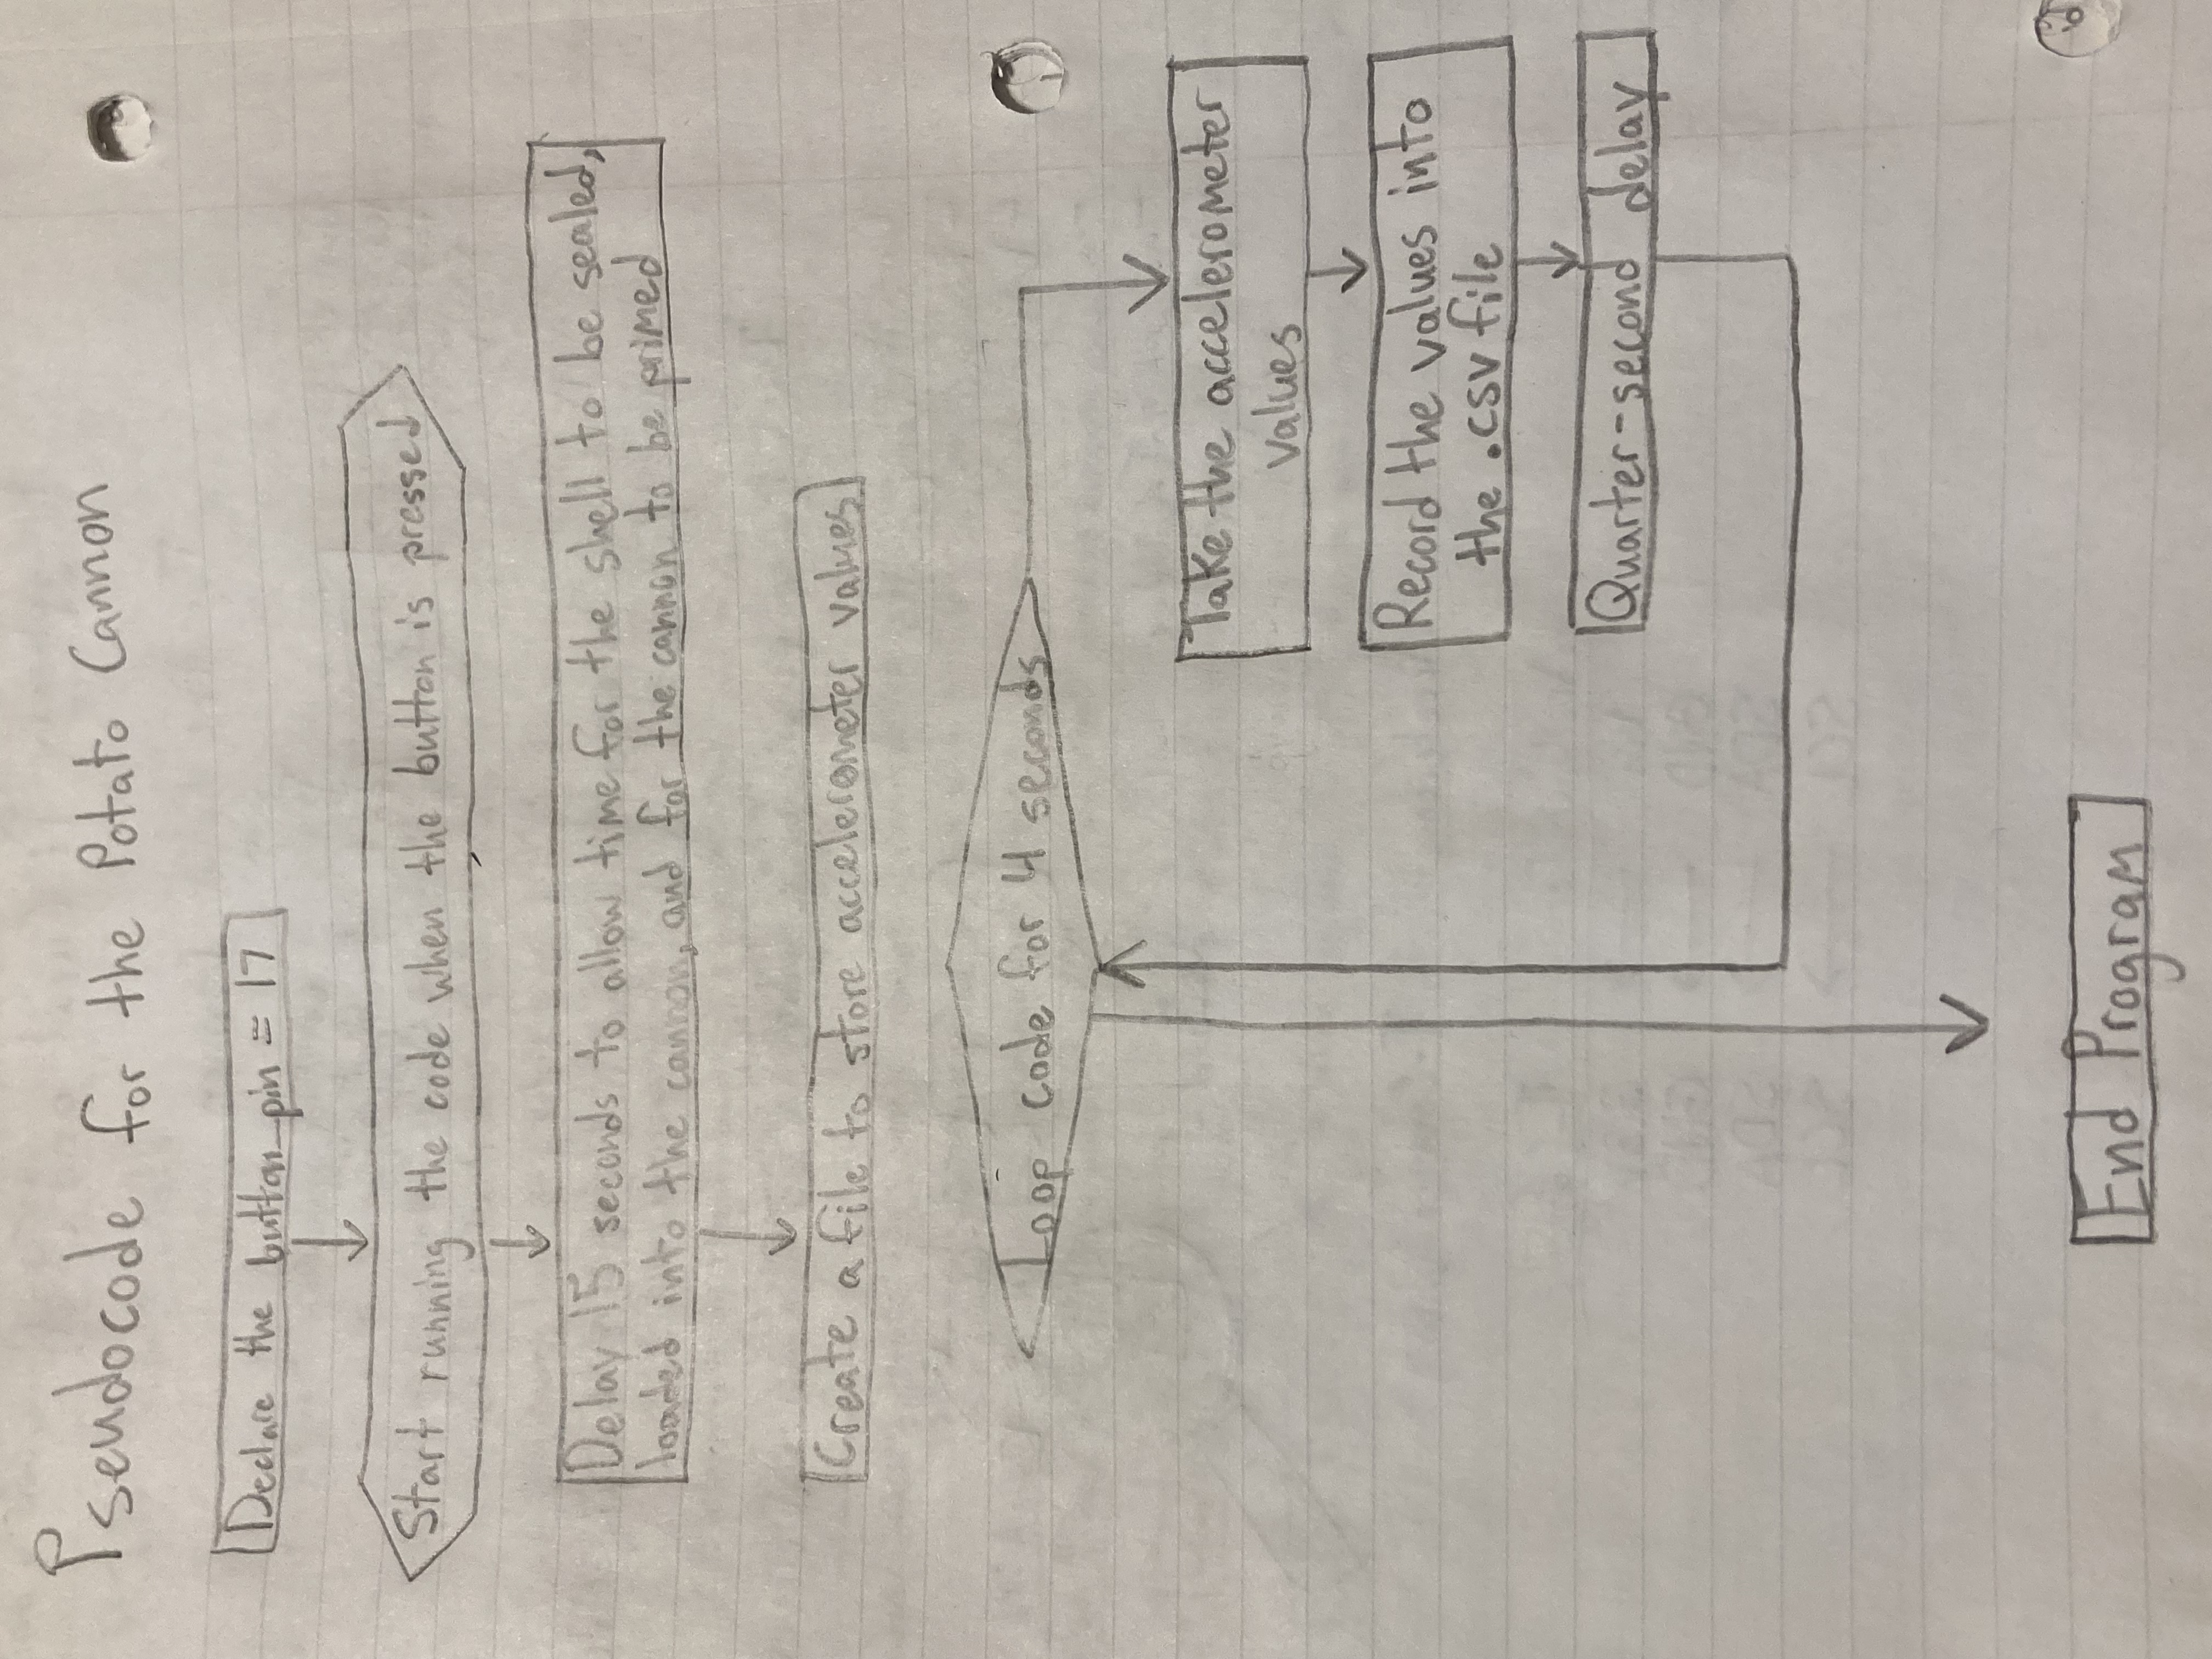 Pseudocode for the Potato Cannon
Declare the button_pin = 17
Start running the code when the button is pressed
Delay 15 seconds to allow time for the shell to be sealed,
loaded into the cannon, and for the cannon to be primed
Create a file to store accelerometer values
Loop code for 4 seconds
Take the accelerometer
values
Record the values into
the .csv file
Quarter-second delay
GND GND
SDA SDA
SCL SCL
End Program